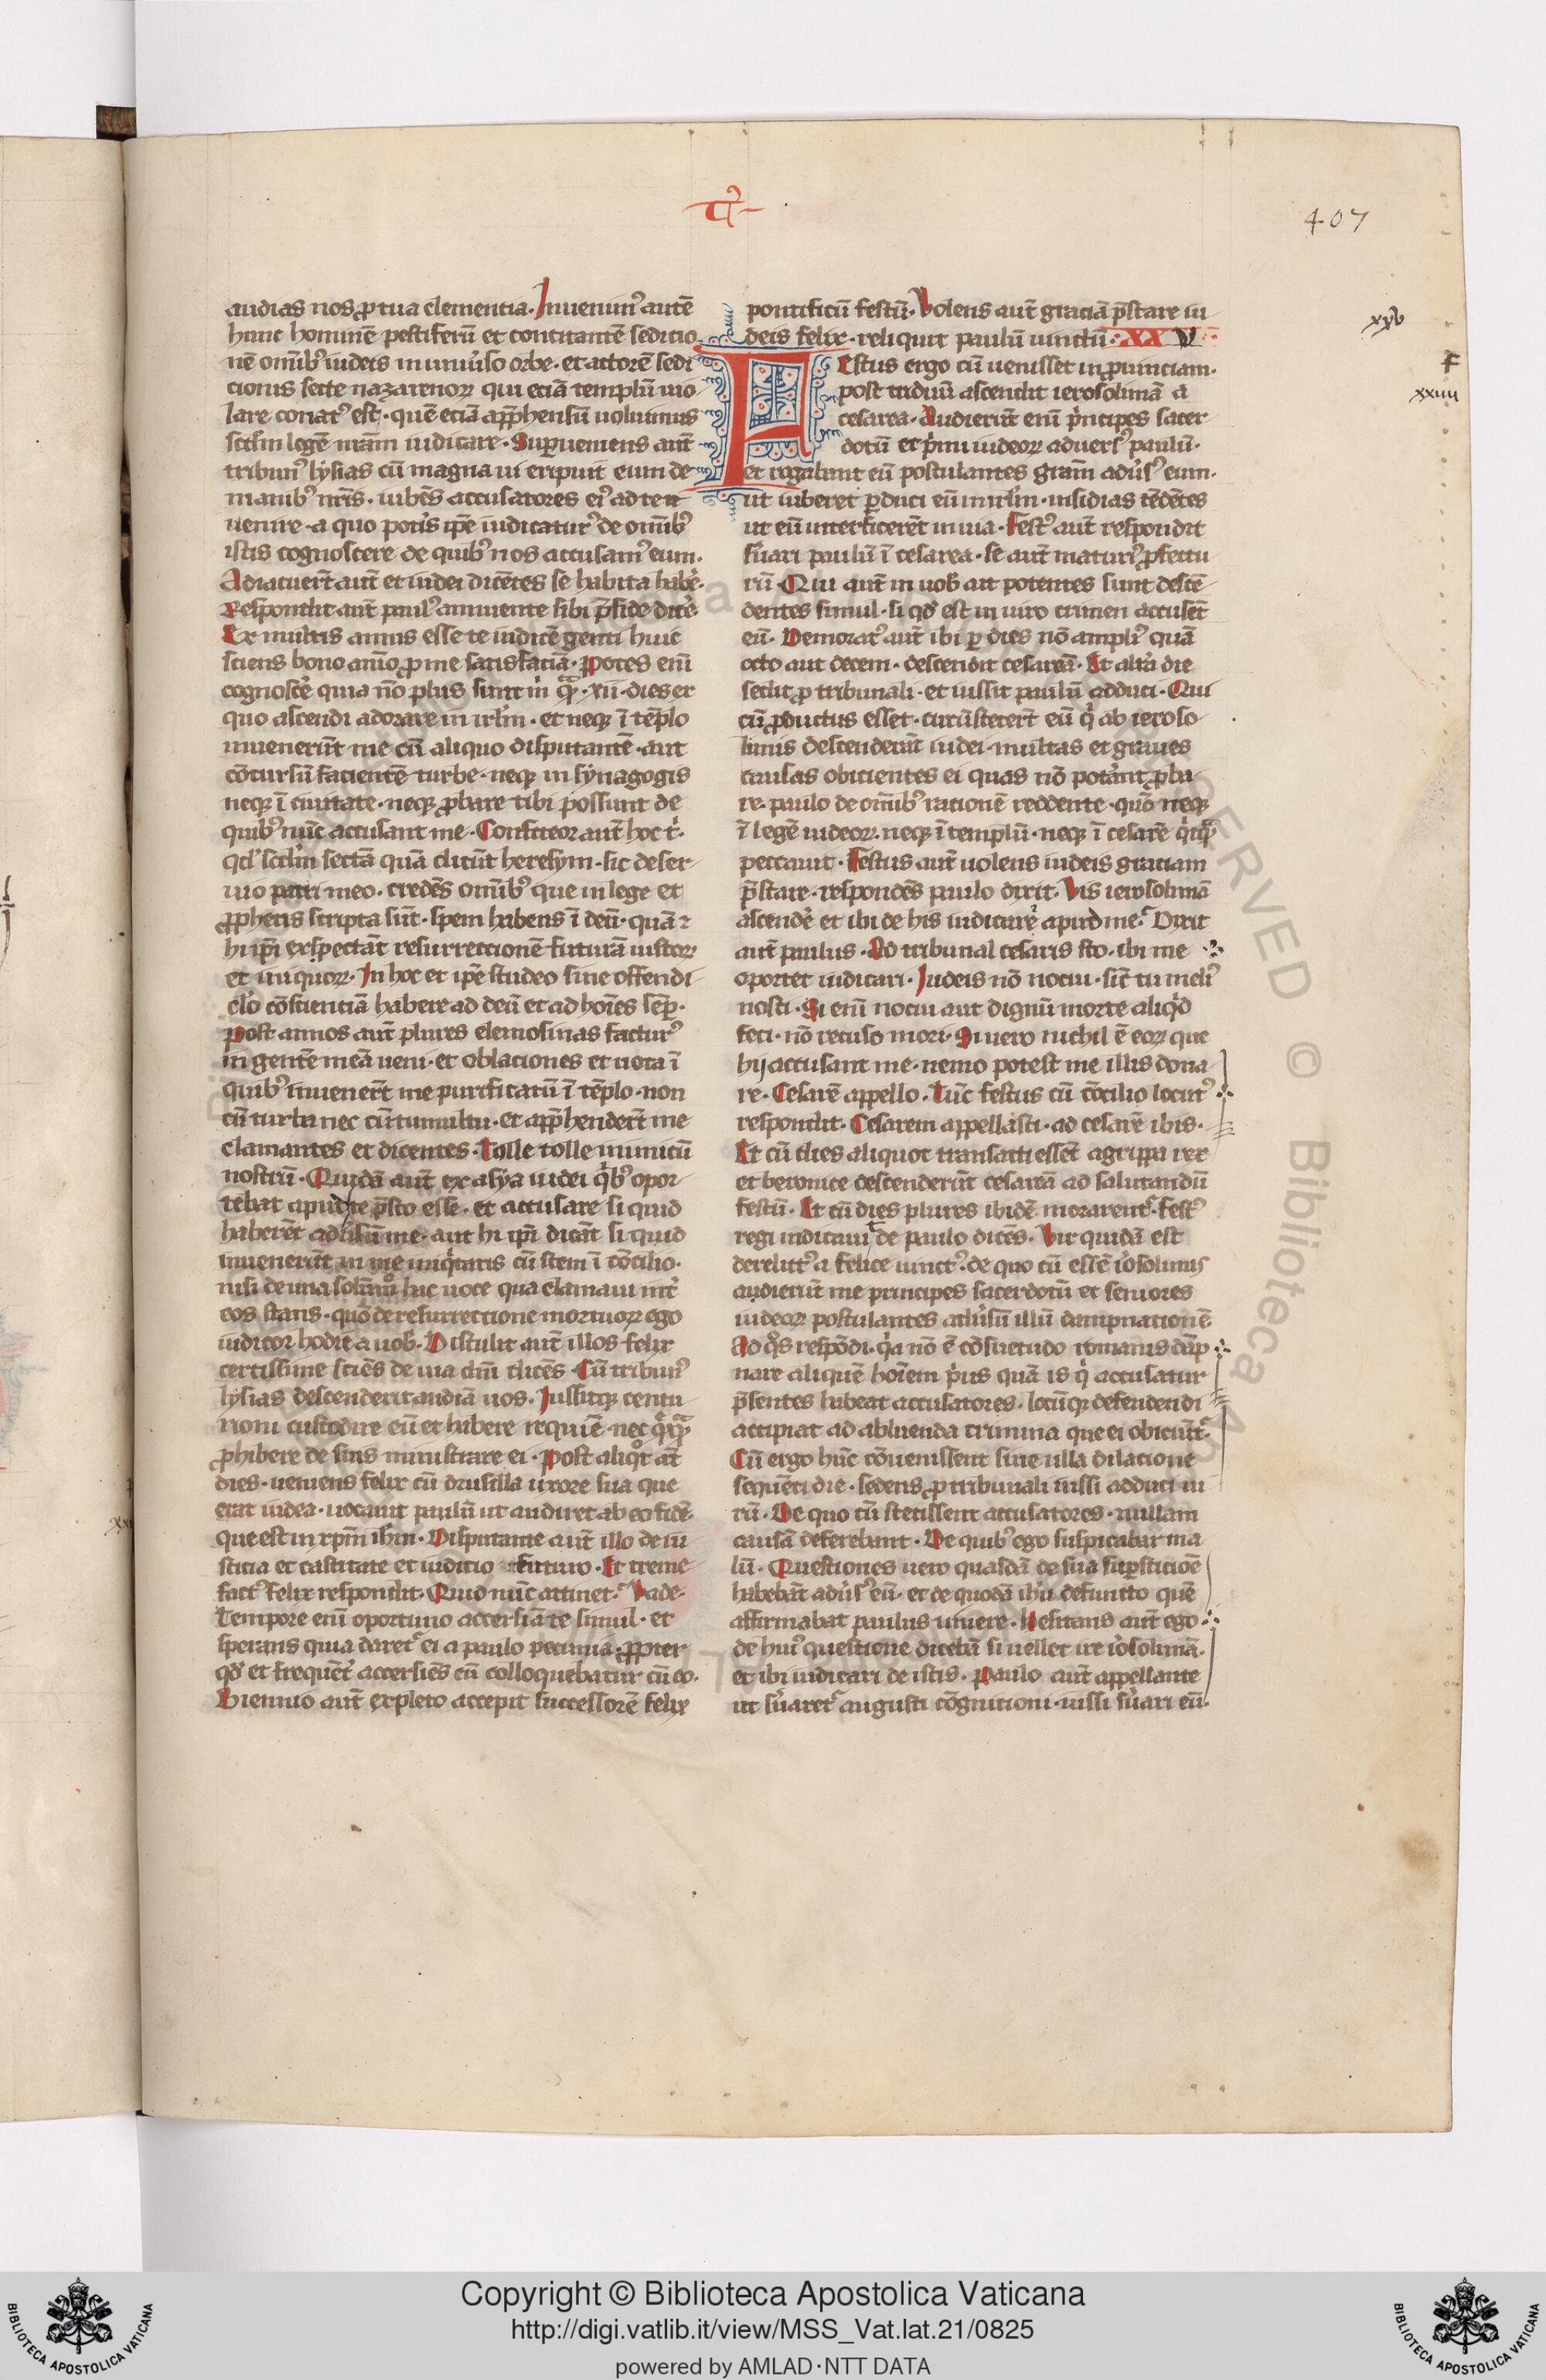 407
audias nos ꝓ tua clementia · Inuenimꝰ autē
hunc hominē pestiferū et concitantē sedicio
nē omībꝫ iudeis in uniuͥso orbe · et actorē sedi
cionis secte nazarenoꝝ qui eciā templū uio
lare conatꝰ est · quē eciā app̄hensū uoluimus
scd̓m legē nr̄am iudicare · Suꝑueniens aut̄
tribunꝰ lysias cū magna ui eripuit eum de
manibꝰ nr̄is · iubēs accusatores eiꝰ ad te
uenire · a quo potis ip̄e iudicatur de omībꝰ
istis cognoscere de quibꝰ nos accusamꝰ eum ·
Adiacuer̄t aut̄ et iudei dicētes se habita habe ·
Respondit aut̄ paulꝰ annuente sibi p̄side dice ·
Ex multis annis esse te iudicē genti huic
sciens bono anīo ꝓ me satisfaciā · Potes eni
cognosce quia nō plus sunt m̄ qͣ · xii · dies ex
quo ascendi adorare in irl̄m · et neqꝫ ī tēplo
inuenerūt me cū aliquo disputantē · aut
cōcursū facientē turbe · neqꝫ in synagogis
neqꝫ ī ciuitate · neqꝫ ꝓbare tibi possunt de
quibꝰ nūc accusant me · Confiteor aut̄ hoc tͥ ·
qd̓ scd̓m sectā quā dicūt heresym · sic deser
uio patri meo · credēs omībꝰ que in lege et
ꝓphetis scripta sūt · spem habens ī deū · quā ⁊
hi ip̄i exspectāt resurrectionē futurā iustoꝝ
et iniquoꝝ · In hoc et ip̄e studeo sine offendi
clo cōscienciā habere ad deū et ad hoīes semꝑ ·
Post annos aut̄ plures elemosinas facturꝰ
in gentē meā ueni · et oblaciones et uota ī
quibꝰ inuener̄t me purificatū ī tēplo · non
cū turba nec cū tumultu · et app̄hender̄t me
clamantes et dicentes · Tolle tolle inimicū
nostrū · Quidā aut̄ ex asya iudei qͥbꝰ opor
tebat apud te p̄sto esse · et accusare si quid
haberēt aduͥsū me · aut hi ip̄i dicāt si quid
inuenerūt in me iniqͥtatis cū stem ī cōcilio ·
nisi de una solūmͦ hac uoce qua clamaui int̄
eos stans · qm̄ de resurrectione mortuoꝝ ego
iudicor hodie a uob · Distulit aut̄ illos felix
certissime sciēs de uia dm̄i dicēs · Cū tribunꝰ
lysias descenderit audiā uos · Iussitqꝫ centu
rioni custodire eū et habere requiē · nec qͥqͣ
ꝓhibere de suis ministrare ei · Post aliqͦt at̄
dies · ueniens felix cū drusilla uxore sua que
erat iudea · uocauit paulū ut audiret ab eo fidē ·
que est in xp̄m ih̄m · Disputante aut̄ illo de iu
sticia et castitate et iudicio futuro · Et treme
factꝰ felix respondit · Quod nūc attinet · Uade ·
Tempore eni oportuno accersiā te simul · et
sperans quia daret̄ ei a paulo pecunia · ꝓpter
qd̓ et frequēt accersiēs eū colloquebatur cū eo ·
Biennio aut̄ expleto accepit successorē felix
pontificū festū · Volens aut̄ graciā p̄stare iu
deis felix · reliquit paulū uinctū · XXV
Festus ergo cū uenisset in prouinciam ·
post triduū ascendit ierosolimā a
cesarea · Audierūt eni pͥncipes sacer
dotū et pͥmi iudeoꝝ aduersꝰ paulū ·
et rogabant eū postulantes gr̄am aduͥsꝰ eum ·
ut iuberet ꝑduci eū in irl̄m · insidias tēdētes
ut eū interficerēt in uia · Festꝰ aut̄ respondit
sͥuari paulū ī cesarea · se aut̄ maturiꝰ ꝓfectu
rū · Qui aut̄ in uob ait potentes sunt descē
dentes simul · si qd̓ est in uiro crimen accusēt
eū · Demoratꝰ aut̄ ibi ꝑ dies nō ampliꝰ quā
octo aut decem · descendit cesareā · Et alia die
sedit ꝓ tribunali · et iussit paulū adduci · Qui
cū ꝑductus esset · circūsteter̄t eū qͥ ab ieroso
limis descenderāt iudei · multas et graues
causas obicientes ei quas nō potͥant ꝓba
re · paulo de omībꝰ rationē reddente · qm̄ neqꝫ
ī legē iudeoꝝ · neqꝫ ī templū · neqꝫ ī cesarē qͥcqͣ
peccauit · Festus aut̄ uolens iudeis graciam
p̄stare · respondēs paulo dixit · Vis ierosolimā
ascende et ibi de his iudicare apud me · Dixit
aut̄ paulus · Ad tribunal cesaris sto · ibi me
oportet iudicari · Iudeis nō nocui · sic̄ tu meliꝰ
nosti · Si eni nocui aut dignū morte aliqͥd
feci · nō recuso mori · Si uero nichil ē eoꝝ que
hij accusant me · nemo potest me illis dona
re · Cesarē appello · Tūc festus cū cōcilio locutꝰ
respondit · Cesarem appellasti · ad cesarē ibis ·
Et cū dies aliquot transacti essēt agrippa rex
et beronice descenderūt cesareā ad salutandū
festū · Et cū dies plures ibidē morarent̄ · festꝰ
regi indicauit de paulo dicēs · Vir quidā est
derelictꝰ a felice uinctꝰ · de quo cū essē iͦsolimis
audierūt me principes sacerdotū et seniores
iudeoꝝ postulantes aduͥsū illū dampnationē
Ad qͦs respōdi · qͥa nō ē cōsuetudo romanis dāp
nare aliquē hoīem pͥus quā is qͥ accusatur
p̄sentes habeat accusatores · locūqꝫ defendendi
accipiat ad abluenda crimina que ei obiciūt̄ ·
Cū ergo hūc cōuenissent sine ulla dilacione
sequēti die · sedens ꝓ tribunali iussi adduci ui
rū · De quo cū stetissent accusatores · nullam
causā deferebant · De quibꝰ ego suspicabar ma
lū · Questiones uero quasdā de sua suꝑsticiōe
habebāt aduͥsꝰ eū · et de quodā ih̄u defuncto quē
affirmabat paulus uiuere · Hesitans aut̄ ego
de huiꝰ questione dicebā si uellet ire iͦsolimā ·
et ibi iudicari de istis · Paulo aut̄ appellante
ut sͥuaret̄ augusti cōgnitioni · iussi sͥuari eū ·
xxv
F
xxiiii
Copyright © Biblioteca Apostolica Vaticana
http://digi.vatlib.it/view/MSS_Vat.lat.21/0825
powered by AMLAD·NTT DATA
BIBLIOTECA APOSTOLICA VATICANA
BIBLIOTECA APOSTOLICA VATICANA